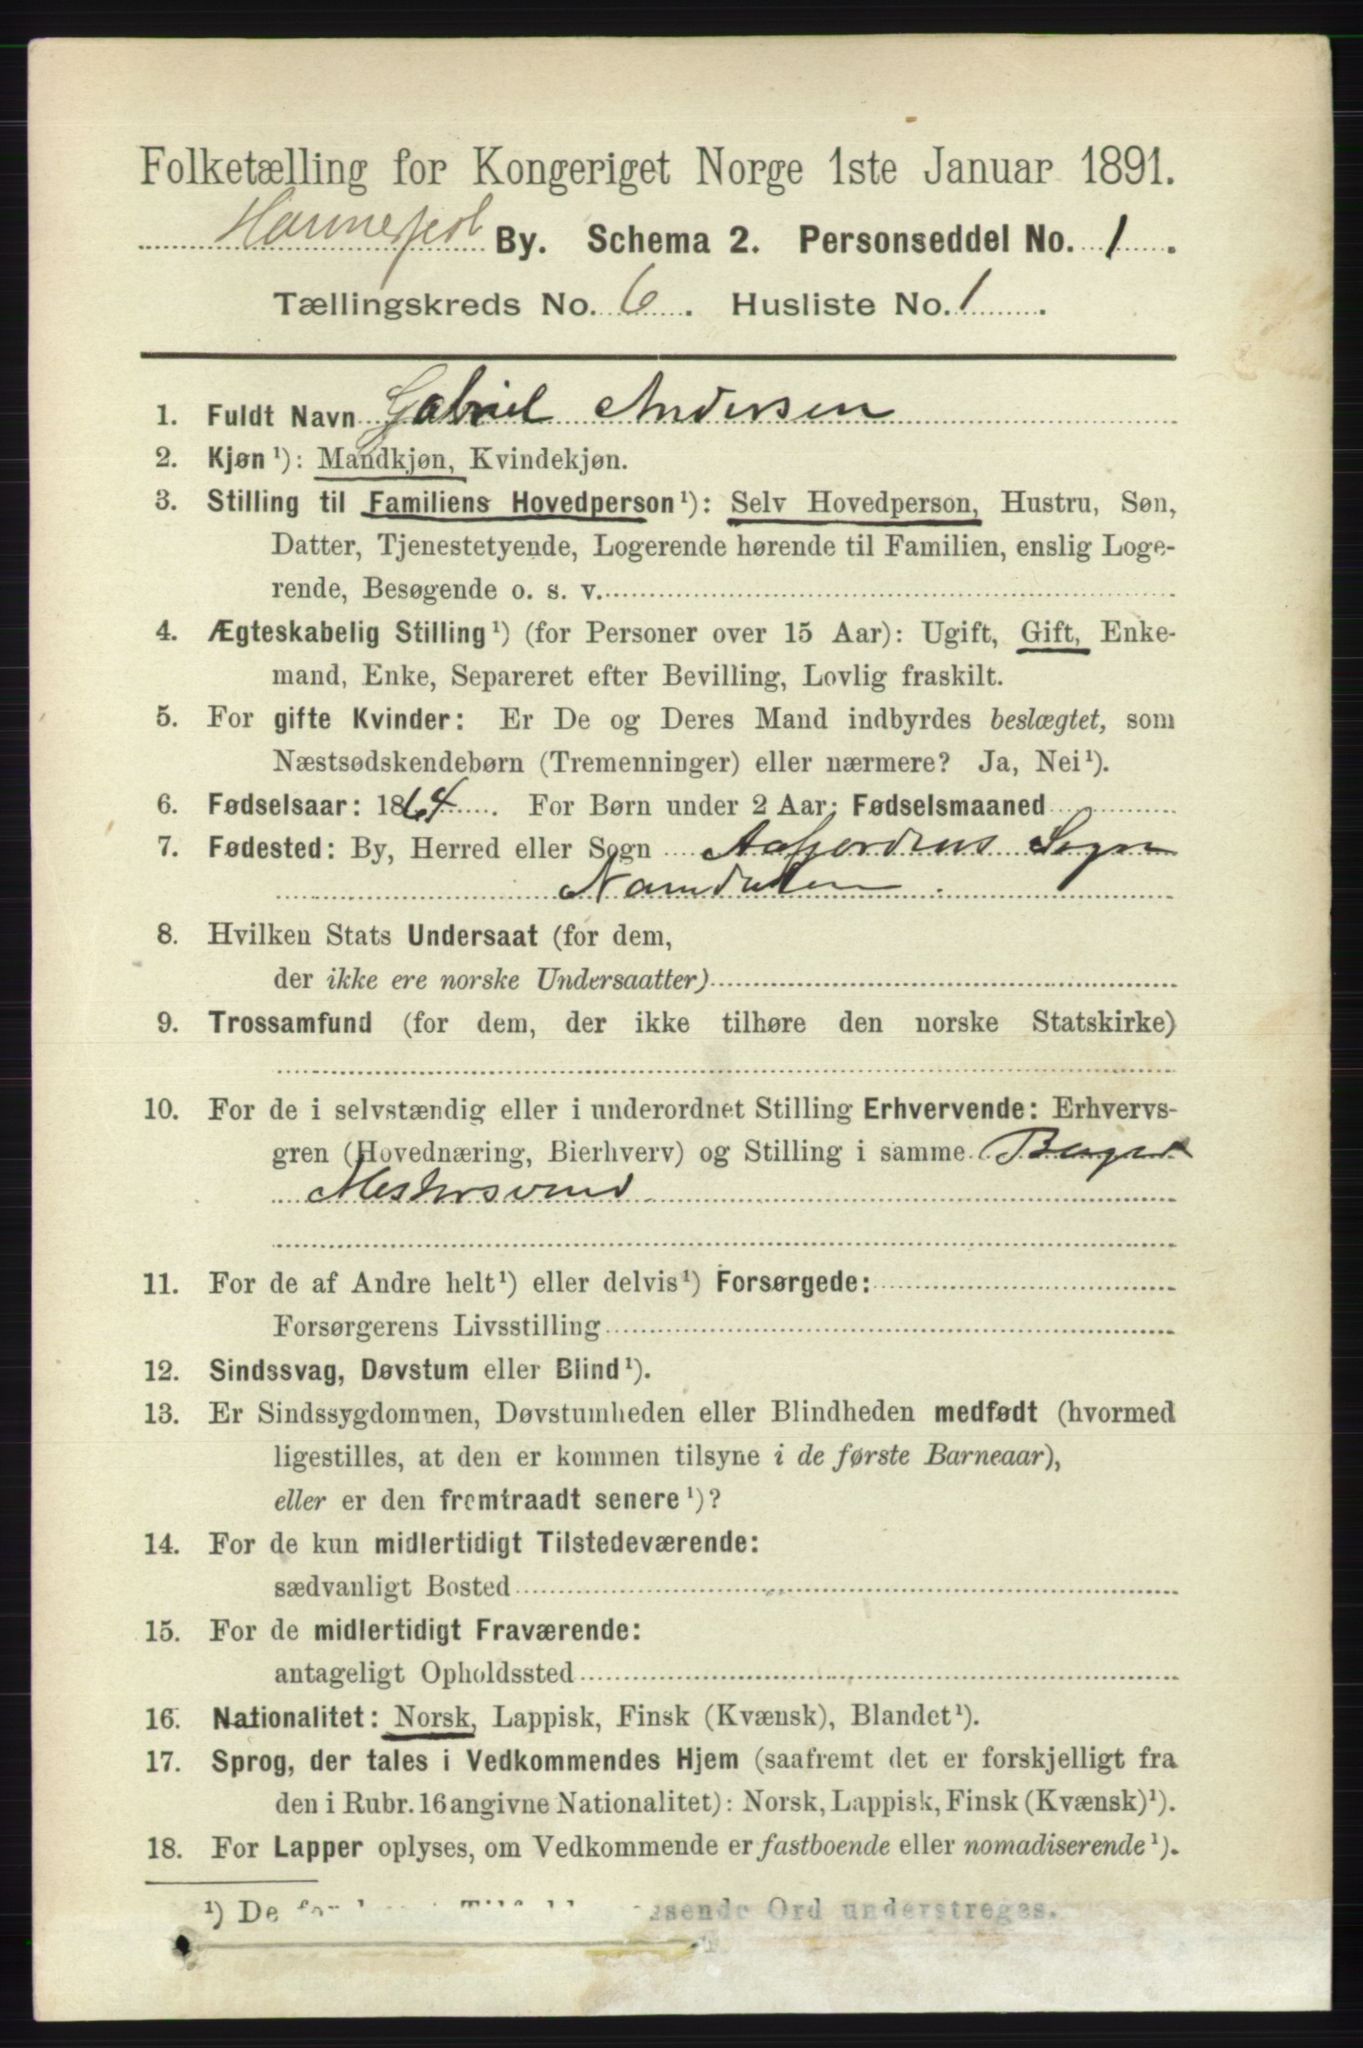 Folketælling for Kongeriget Norge 1ste Januar 1891.
Hammerfest By. Schema 2. Personseddel No. 1.
Tællingskreds No. 6. Husliste No. 1.
1. Fuldt Navn Gabriel Andersen
2. Kjøn¹): Mandkjøn, Kvindekjøn.
3. Stilling til Familiens Hovedperson¹): Selv Hovedperson, Hustru, Søn,
Datter, Tjenestetyende, Logerende hørende til Familien, enslig Loge-
rende, Besøgende o. s. v.
4. Ægteskabelig Stilling¹) (for Personer over 15 Aar): Ugift, Gift, Enke-
mand, Enke, Separeret efter Bevilling, Lovlig fraskilt.
5. For gifte Kvinder: Er De og Deres Mand indbyrdes beslægtet, som
Næstsødskendebørn (Tremenninger) eller nærmere? Ja, Nei¹).
6. Fødselsaar: 1864. For Børn under 2 Aar: Fødselsmaaned
7. Fødested: By, Herred eller Sogn Aafjordens Sogn
Namdalen.
8. Hvilken Stats Undersaat (for dem,
der ikke ere norske Undersaatter)
9. Trossamfund (for dem, der ikke tilhøre den norske Statskirke)
10. For de i selvstændig eller i underordnet Stilling Erhvervende: Erhvervs-
gren (Hovednæring, Bierhverv) og Stilling i samme Bager
Mestersvend
11. For de af Andre helt¹) eller delvis¹) Forsørgede:
Forsørgerens Livsstilling
12. Sindssvag, Døvstum eller Blind¹).
13. Er Sindssygdommen, Døvstumheden eller Blindheden medfødt (hvormed
ligestilles, at den er kommen tilsyne i de første Barneaar),
eller er den fremtraadt senere¹)?
14. For de kun midlertidigt Tilstedeværende:
sædvanligt Bosted
15. For de midlertidigt Fraværende:
antageligt Opholdssted
16. Nationalitet: Norsk, Lappisk, Finsk (Kvænsk), Blandet¹).
17. Sprog, der tales i Vedkommendes Hjem (saafremt det er forskjelligt fra
den i Rubr. 16 angivne Nationalitet): Norsk, Lappisk, Finsk (Kvænsk)¹).
18. For Lapper oplyses, om Vedkommende er fastboende eller nomadiserende¹).
¹) De Ord understreges.